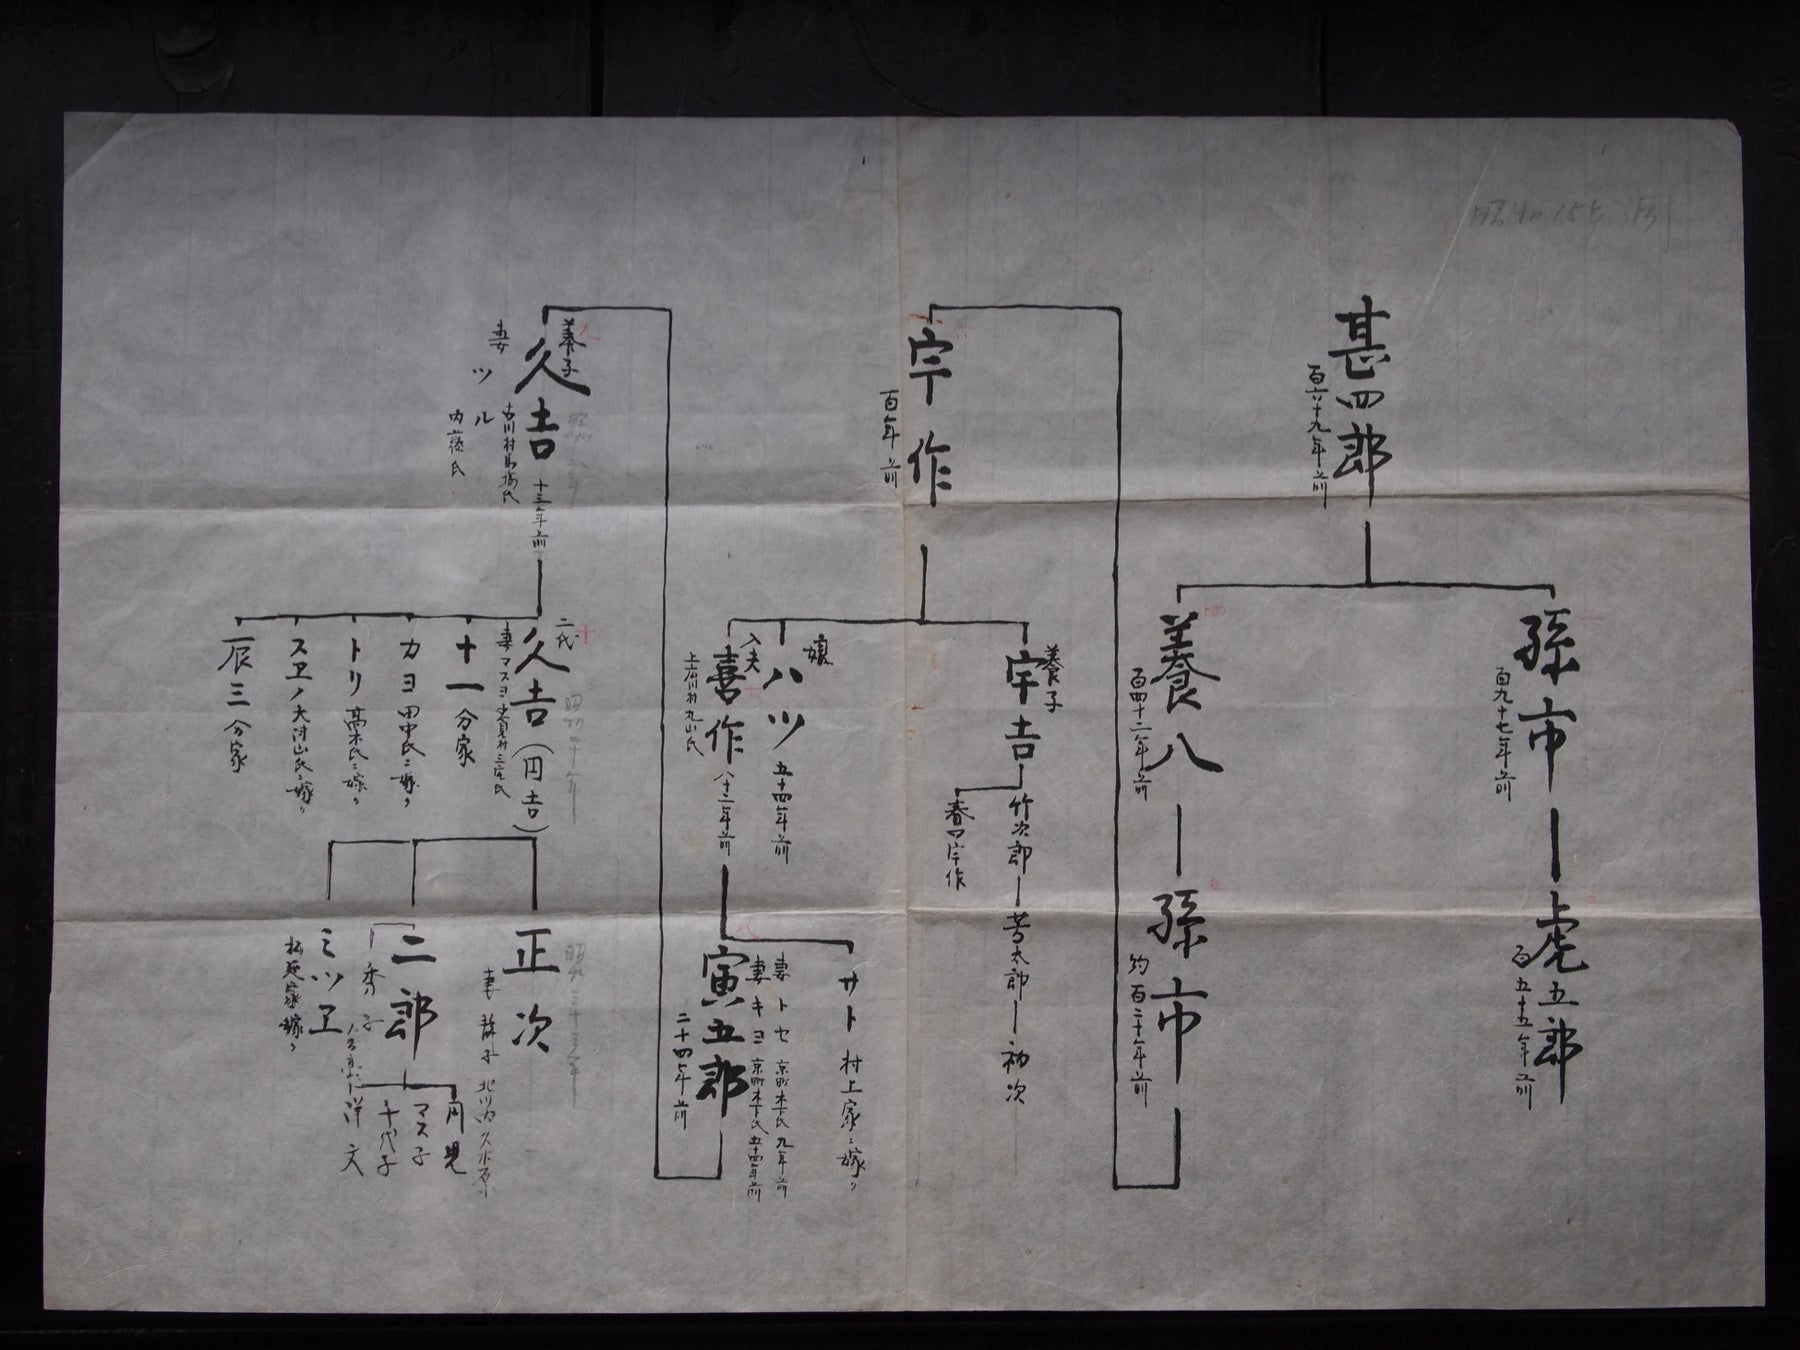 甚四郎
百六十九年前
孫市
百九十七年前
虎五郎
百五十五年前
養八
百四十二年前
孫市
約百二十年前
宇作
百年前
養子
宇吉
竹次郎
芳太郎
初次
春四
宇作
嬢
ハツ
五十四年前
入夫
喜作
八十二年前
上広川村丸山氏
サト
村上家ニ嫁ク
寅五郎
二十四年前
妻トセ
京町木下氏
九年前
妻キヨ
京町木下氏
五十四年前
九
養子
久吉
十三年前
古川村馬場氏
妻
ツル
内藤氏
十
二代
久吉(円吉)
昭和二十年
妻マスヨ
十一
分家
カヨ
田中氏ニ嫁ク
トリ
高木氏ニ嫁ク
スヱノ
大村山氏ニ嫁ク
辰三
分家
正次
妻
二郎
秀子
ミツヱ
松延家嫁ク
マス子
千代子
洋文